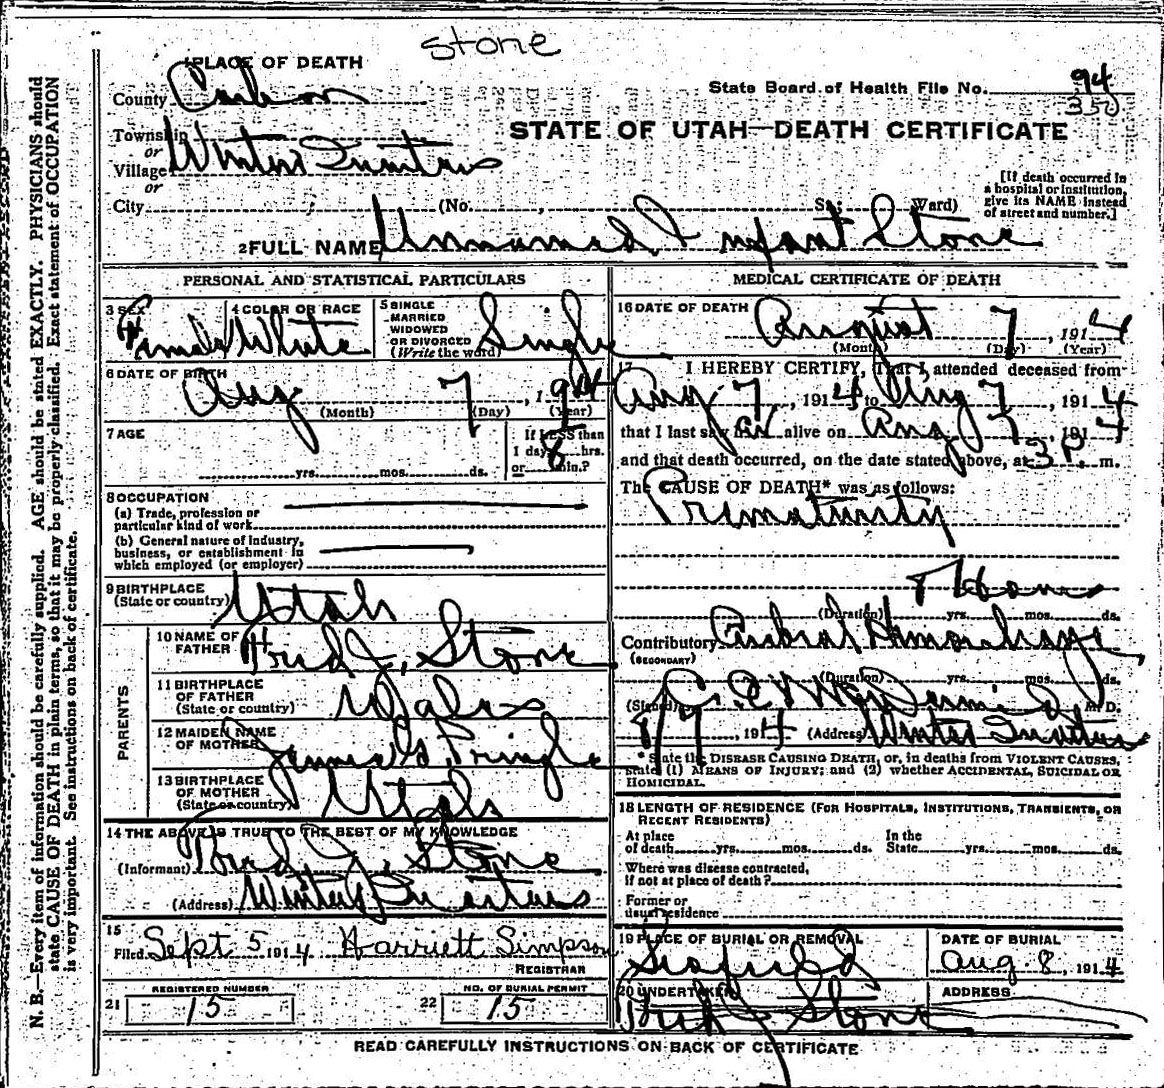 Stone
1 PLACE OF DEATH
State Board of Health File No. 94
350
County Carbon
STATE OF UTAH—DEATH CERTIFICATE
Township
or
Village Winter Quarters
or
City (No. , St; Ward)
[If death occurred in
a hospital or institution,
give its NAME instead
of street and number.]
2 FULL NAME Unnamed Infant Stone
PERSONAL AND STATISTICAL PARTICULARS
3 SEX Female
4 COLOR OR RACE White
5 SINGLE
MARRIED
WIDOWED
OR DIVORCED
(Write the word) Single
6 DATE OF BIRTH
Aug 7, 1914
(Month) (Day) (Year)
7 AGE
yrs. mos. ds.
If LESS than
1 day 8 hrs.
or min.?
8 OCCUPATION
(a) Trade, profession or
particular kind of work
(b) General nature of industry,
business, or establishment in
which employed (or employer)
9 BIRTHPLACE
(State or country) Utah
PARENTS
10 NAME OF
FATHER Fred J. Stone
11 BIRTHPLACE
OF FATHER
(State or country) Wales
12 MAIDEN NAME
OF MOTHER Pringle
13 BIRTHPLACE
OF MOTHER
(State or country) Utah
14 THE ABOVE IS TRUE TO THE BEST OF MY KNOWLEDGE
(Informant) Fred J. Stone
(Address) Winter Quarters
15
Filed Sept 5 1914 Harriett Simpson
REGISTRAR
21 REGISTERED NUMBER
15
22 NO. OF BURIAL PERMIT
15
MEDICAL CERTIFICATE OF DEATH
16 DATE OF DEATH
August 7, 1914
(Month) (Day) (Year)
17 I HEREBY CERTIFY, That I attended deceased from
Aug 7, 1914 to Aug 7, 1914
that I last saw her alive on Aug 7 1914
and that death occurred, on the date stated above, at 3 P. m.
The CAUSE OF DEATH* was as follows:
Prematurity
(Duration) yrs. mos. ds.
Contributory Cerebral Hemorrhage
(SECONDARY)
(Duration) yrs. mos. ds.
(Signed) M. D.
8/7, 1914 (Address) Winter Quarters
* State the DISEASE CAUSING DEATH, or, in deaths from VIOLENT CAUSES,
state (1) MEANS OF INJURY; and (2) whether ACCIDENTAL, SUICIDAL OR
HOMICIDAL.
18 LENGTH OF RESIDENCE (FOR HOSPITALS, INSTITUTIONS, TRANSIENTS, OR
RECENT RESIDENTS)
At place
of death yrs. mos. ds.
In the
State yrs. mos. ds.
Where was disease contracted,
if not at place of death?
Former or
usual residence
19 PLACE OF BURIAL OR REMOVAL
Scofield
DATE OF BURIAL
Aug. 8, 1914
20 UNDERTAKER
Fred J Stone
ADDRESS
READ CAREFULLY INSTRUCTIONS ON BACK OF CERTIFICATE
N. B.—Every item of information should be carefully supplied. AGE should be stated EXACTLY. PHYSICIANS should
state CAUSE OF DEATH in plain terms, so that it may be properly classified. Exact statement of OCCUPATION
is very important. See instructions on back of certificate.